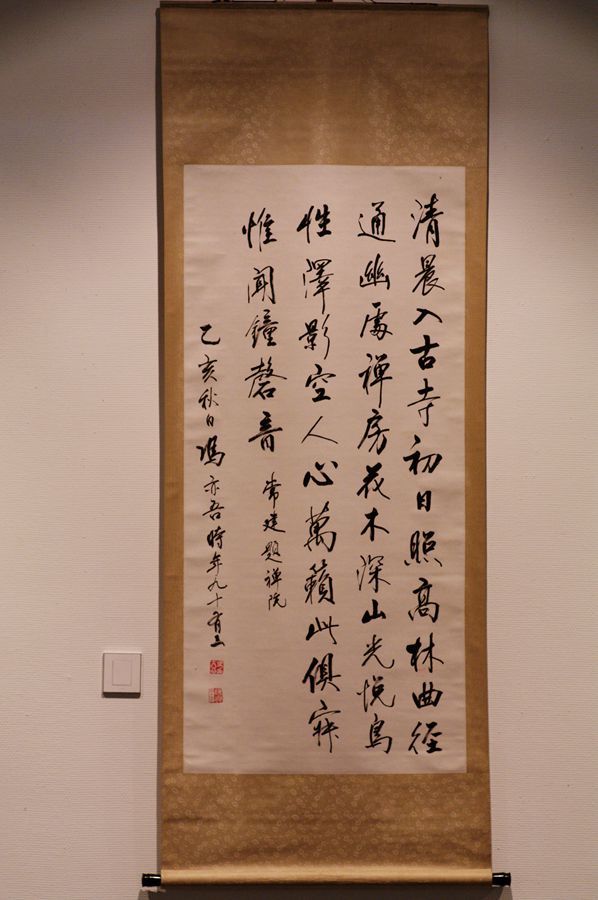 清晨入古寺初日照高林曲径
通幽處禅房花木深山光悦鳥
性潭影空人心萬籟此俱寂
惟聞鐘磬音
常建題禅院
乙亥秋日馮亦吾時年九十有三